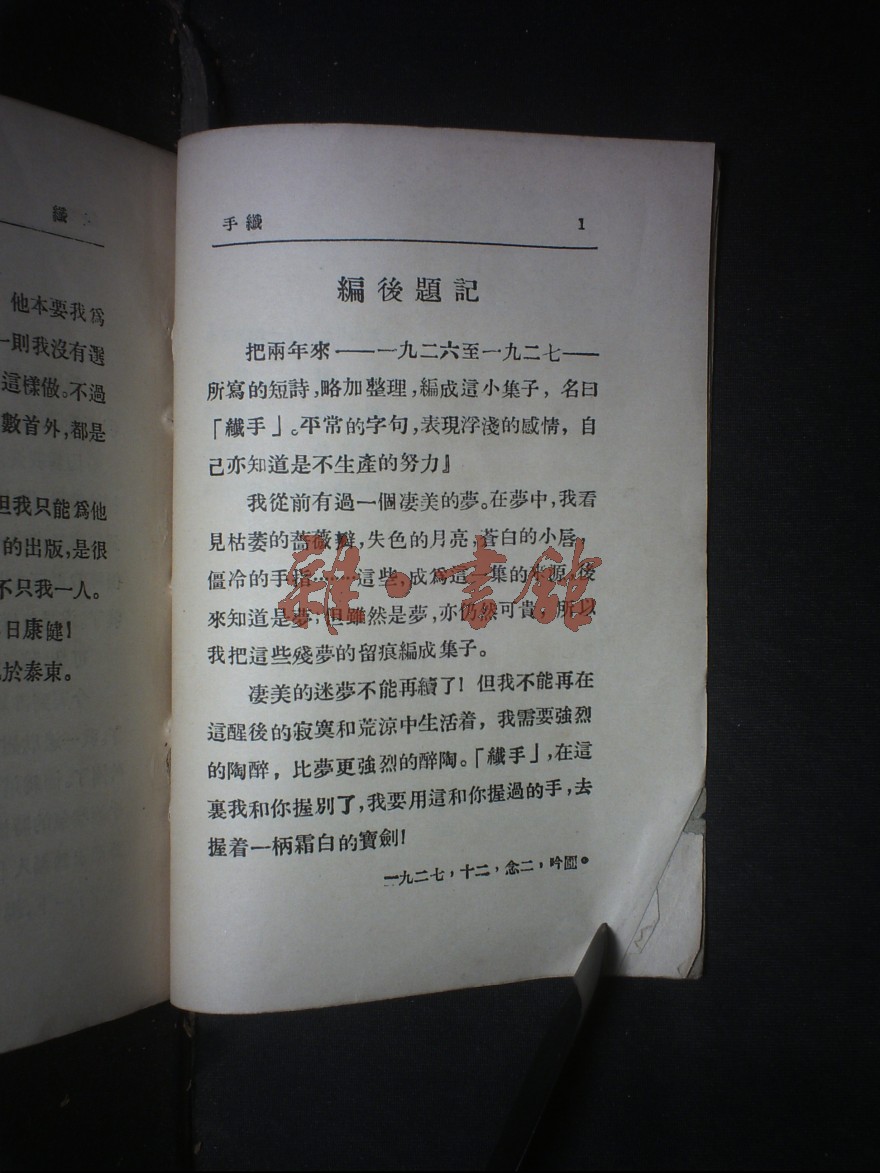 纖
他本要我爲
一則我沒有選
這樣做。不過
數首外，都是
但我只能爲他
的出版，是很
不只我一人。
日康健！
於泰東。
手纖 1
編後題記
把兩年來——一九二六至一九二七——
所寫的短詩，略加整理，編成這小集子，名曰
「纖手」。平常的字句，表現浮淺的感情，自
己亦知道是不生產的努力』
我從前有過一個凄美的夢。在夢中，我看
見枯萎的薔薇瓣，失色的月亮，蒼白的小唇，
僵冷的手指………這些，成爲這一集的本源，後
來知道是夢；但雖然是夢，亦仍然可貴，所以
我把這些殘夢的留痕編成集子。
凄美的迷夢不能再續了！但我不能再在
這醒後的寂寞和荒涼中生活着，我需要強烈
的陶醉，比夢更強烈的醉陶。「纖手」，在這
裏我和你握別了，我要用這和你握過的手，去
握着一柄霜白的寶劍！
一九二七，十二，念二，吟圃。
雜·書館